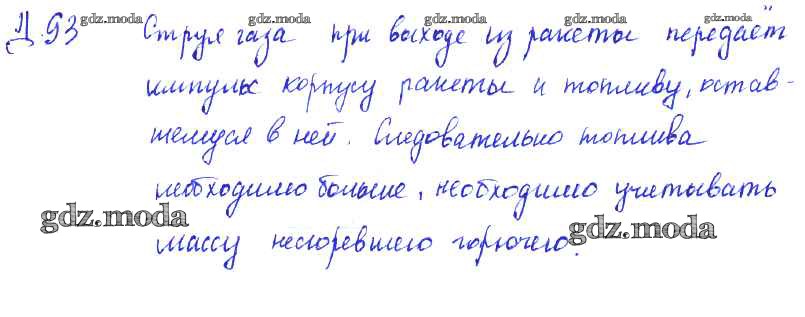 gdz.moda gdz.moda gdz.moda gdz.moda gdz.moda
Д.93 Струя газа при выходе из ракеты передаёт
импульс корпусу ракеты и топливу, остав-
шемуся в ней. Следовательно топлива
необходимо больше, необходимо учитывать
gdz.moda
массу несгоревшего горючего.
gdz.moda